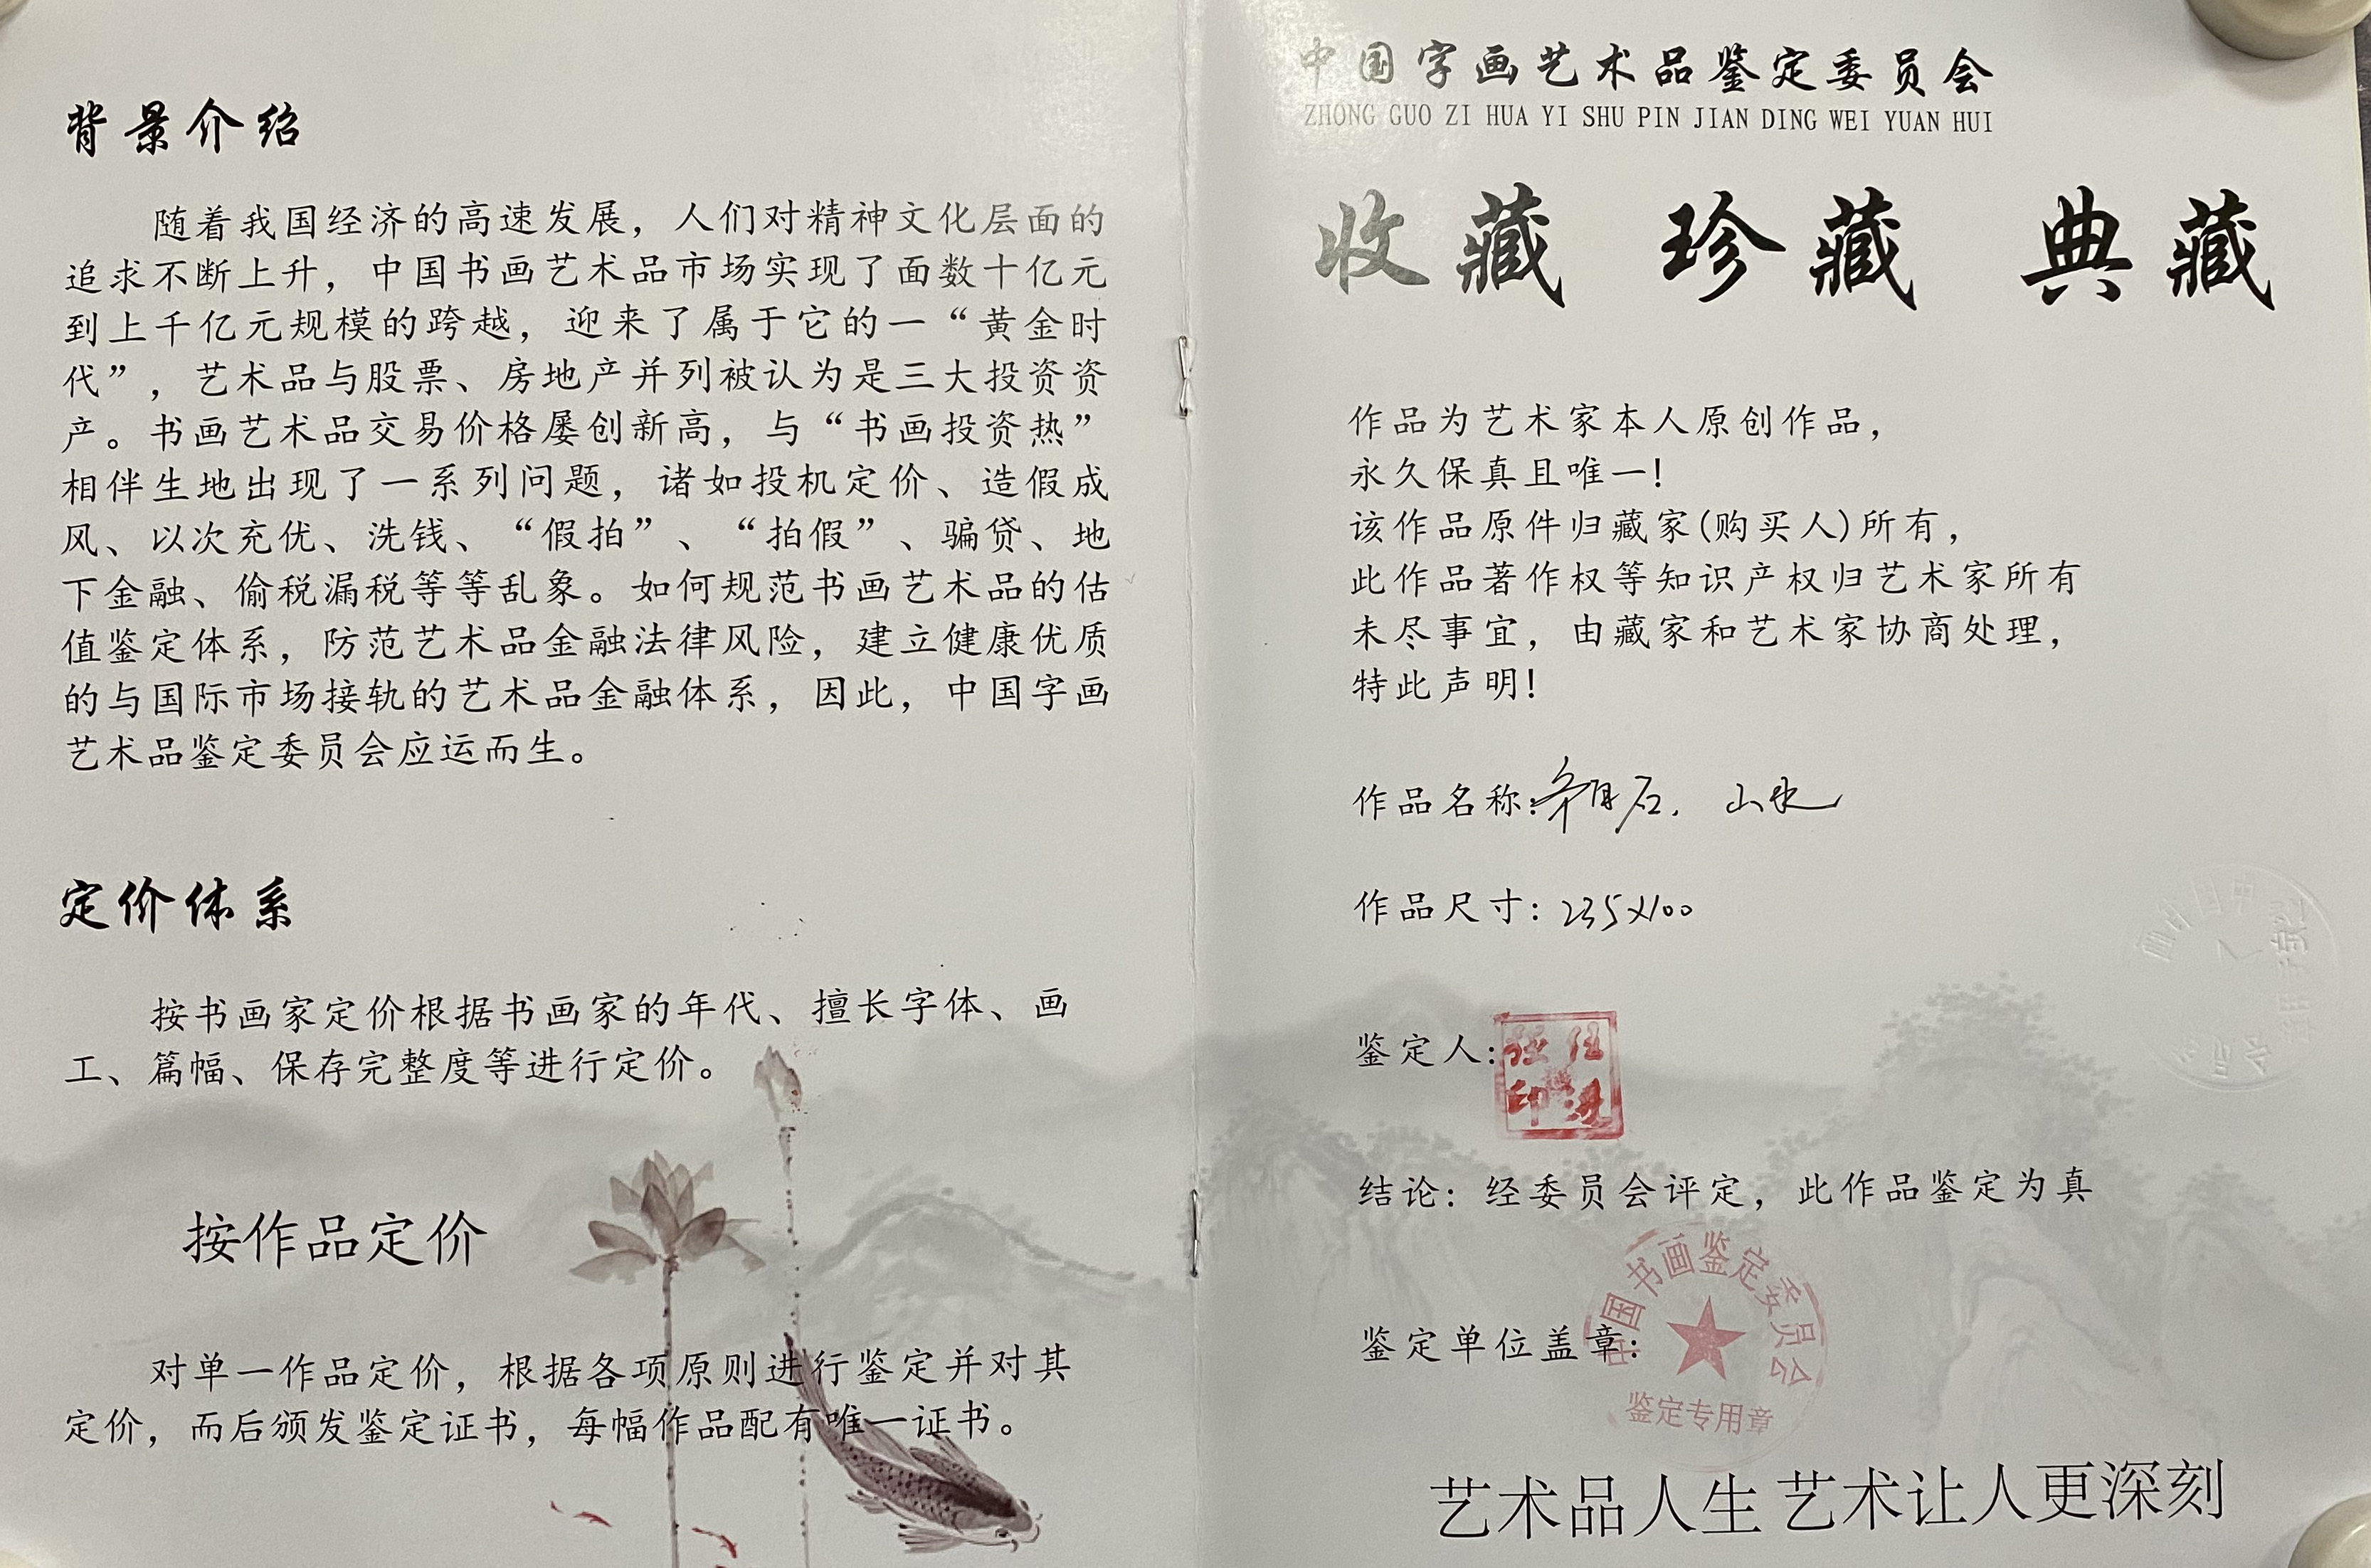 背景介绍
随着我国经济的高速发展，人们对精神文化层面的
追求不断上升，中国书画艺术品市场实现了面数十亿元
到上千亿元规模的跨越，迎来了属于它的一“黄金时
代”，艺术品与股票、房地产并列被认为是三大投资资
产。书画艺术品交易价格屡创新高，与“书画投资热”
相伴生地出现了一系列问题，诸如投机定价、造假成
风、以次充优、洗钱、“假拍”、“拍假”、骗贷、地
下金融、偷税漏税等等乱象。如何规范书画艺术品的估
值鉴定体系，防范艺术品金融法律风险，建立健康优质
的与国际市场接轨的艺术品金融体系，因此，中国字画
艺术品鉴定委员会应运而生。
定价体系
按书画家定价根据书画家的年代、擅长字体、画
工、篇幅、保存完整度等进行定价。
按作品定价
对单一作品定价，根据各项原则进行鉴定并对其
定价，而后颁发鉴定证书，每幅作品配有唯一证书。
中国字画艺术品鉴定委员会
ZHONG GUO ZI HUA YI SHU PIN JIAN DING WEI YUAN HUI
收藏 珍藏 典藏
作品为艺术家本人原创作品，
永久保真且唯一！
该作品原件归藏家(购买人)所有，
此作品著作权等知识产权归艺术家所有
未尽事宜，由藏家和艺术家协商处理，
特此声明！
作品名称: 山水
作品尺寸: 235X100
鉴定人:
结论: 经委员会评定，此作品鉴定为真
鉴定单位盖章:
中国书画鉴定委员会
鉴定专用章
艺术品人生 艺术让人更深刻